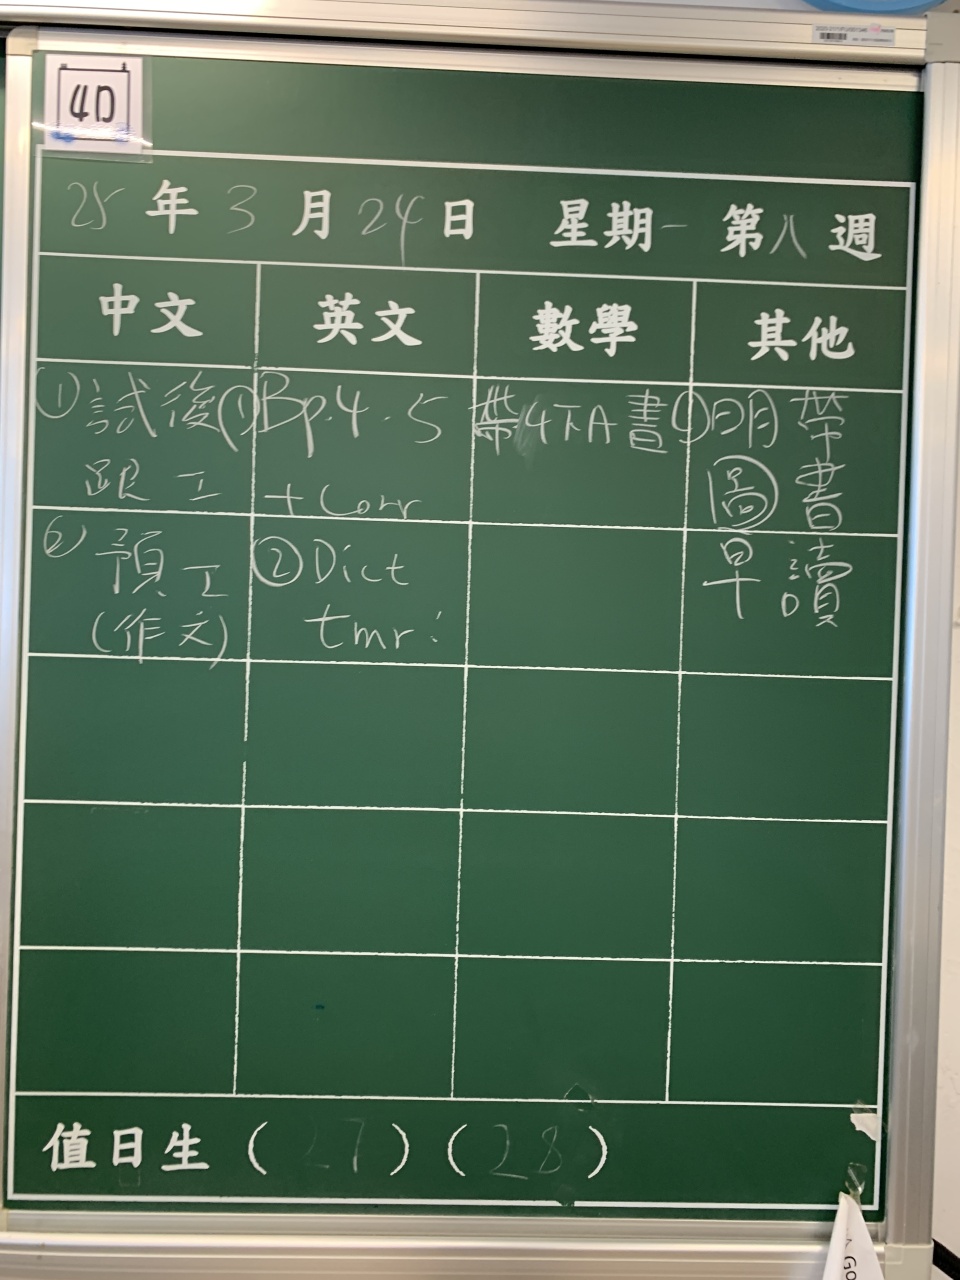 4D
25年3月24日 星期一 第八週
中文 英文 數學 其他
①試後
跟工
①Bp.4.5
+Corr
帶4下A書
①明帶
圖書
②預工
(作文)
②Dict
tmr
早讀
值日生(27)(28)
Go